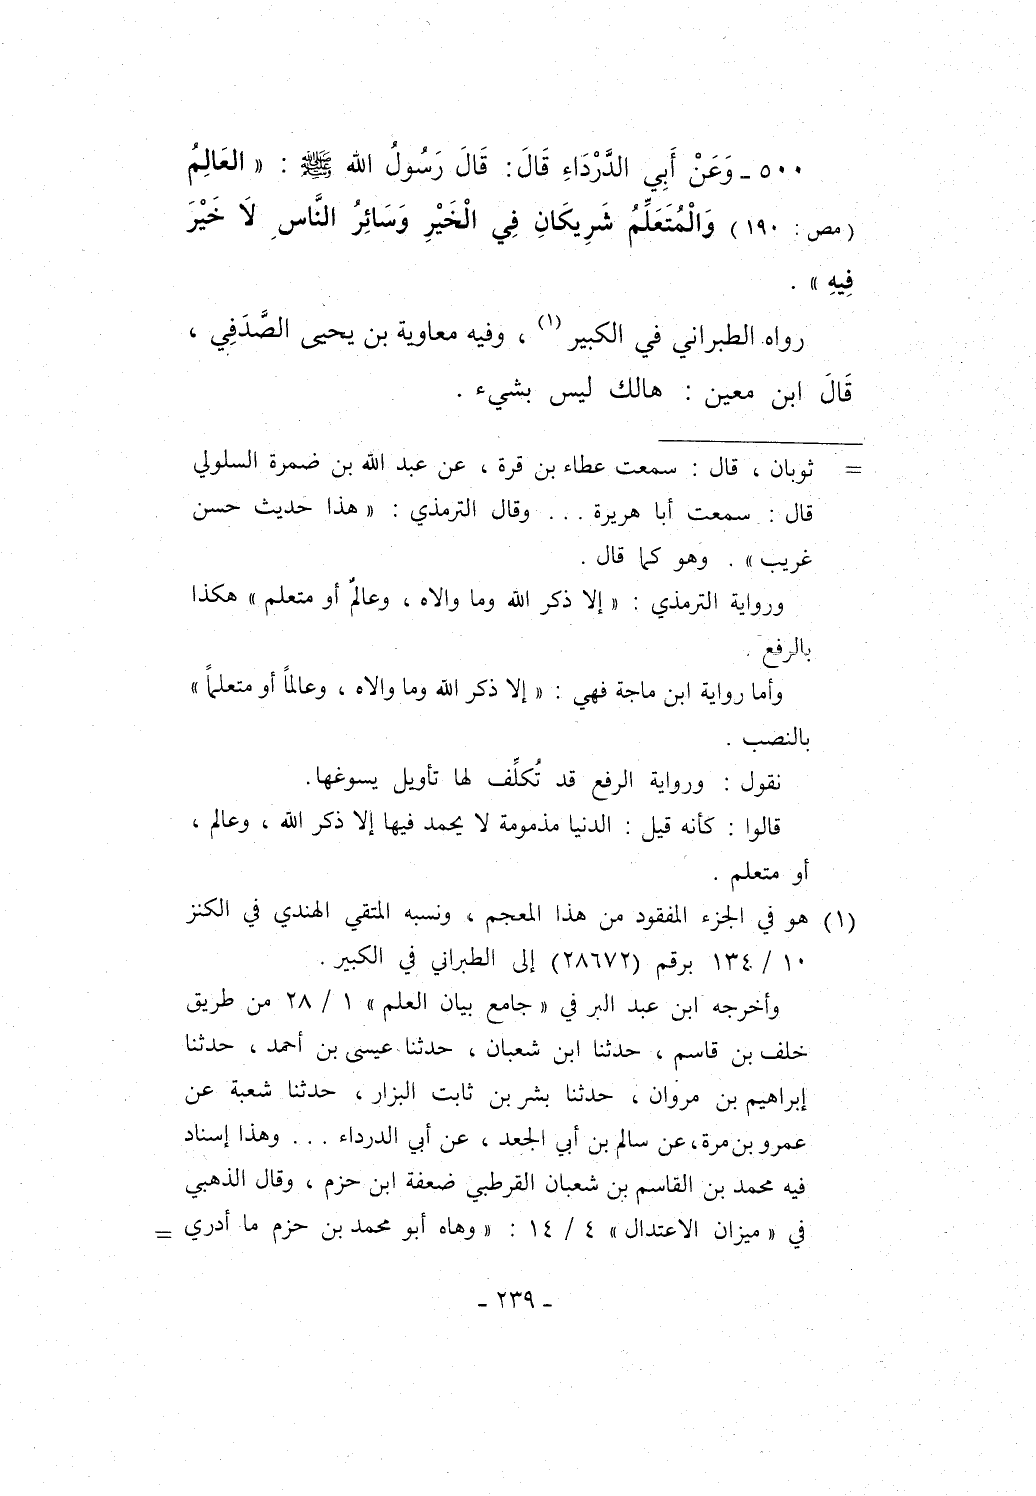 ٥٠٠ ـ وَعَنْ أَبِي الدَّرْدَاءِ قَالَ: قَالَ رَسُولُ الله ﷺ : « العَالِمُ
(مص : ١٩٠) وَالْمُتَعَلِّمُ شَرِيكَانِ فِي الْخَيْرِ وَسَائِرُ النَّاسِ لَا خَيْرَ
فِيهِ » .
رواه الطبراني في الكبير (١) ، وفيه معاوية بن يحيى الصَّدَفِي ،
قَالَ ابن معين : هالك ليس بشيء .
= ثوبان ، قال : سمعت عطاء بن قرة ، عن عبد الله بن ضمرة السلولي
قال : سمعت أبا هريرة ... وقال الترمذي : « هذا حديث حسن
غريب » . وهو كما قال .
ورواية الترمذي : « إلا ذكر الله وما والاه ، وعالمٌ أو متعلم » هكذا
بالرفع .
وأما رواية ابن ماجة فهي : « إلا ذكر الله وما والاه ، وعالماً أو متعلماً »
بالنصب .
نقول : ورواية الرفع قد تُكلِّف لها تأويل يسوغها.
قالوا : كأنه قيل : الدنيا مذمومة لا يحمد فيها إلا ذكر الله ، وعالم ،
أو متعلم .
(١) هو في الجزء المفقود من هذا المعجم ، ونسبه المتقي الهندي في الكنز
١٠ / ١٣٤ برقم (٢٨٦٧٢) إلى الطبراني في الكبير .
وأخرجه ابن عبد البر في « جامع بيان العلم » ١ / ٢٨ من طريق
خلف بن قاسم ، حدثنا ابن شعبان ، حدثنا عيسى بن أحمد ، حدثنا
إبراهيم بن مروان ، حدثنا بشر بن ثابت البزار ، حدثنا شعبة عن
عمرو بن مرة، عن سالم بن أبي الجعد ، عن أبي الدرداء ... وهذا إسناد
فيه محمد بن القاسم بن شعبان القرطبي ضعفة ابن حزم ، وقال الذهبي
في « ميزان الاعتدال » ٤ / ١٤ : « وهاه أبو محمد بن حزم ما أدري =
ـ ٢٣٩ ـ